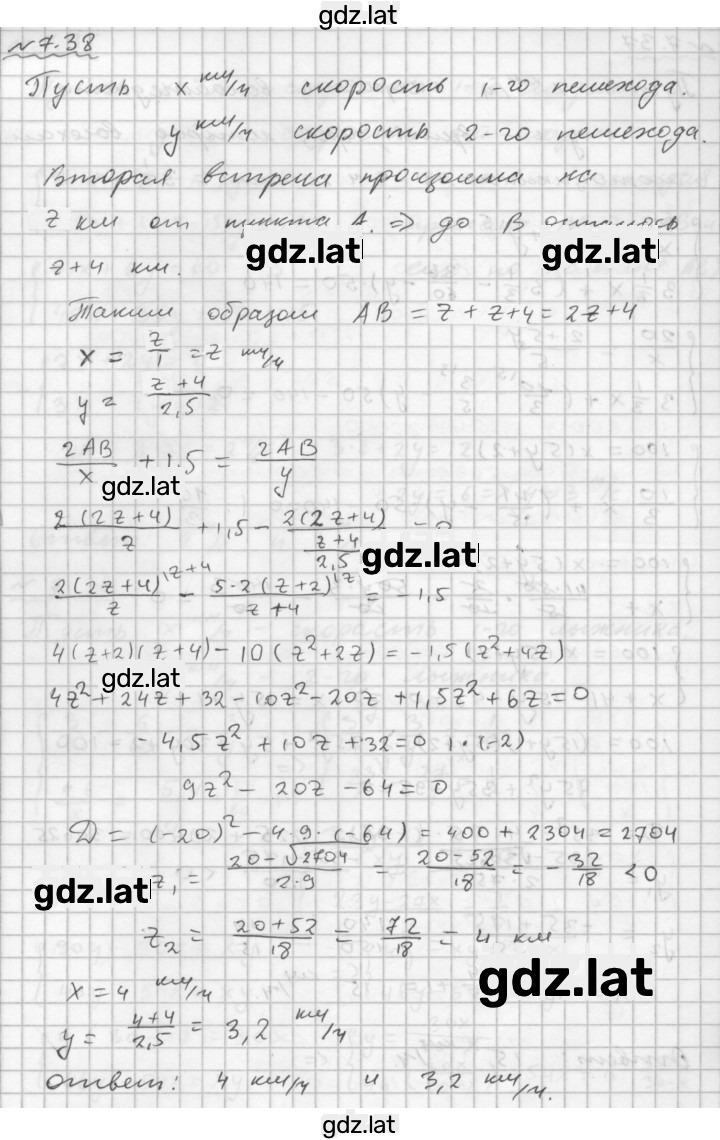 gdz.lat
№ 7.38
Пусть x км/ч скорость 1-го пешехода.
y км/ч скорость 2-го пешехода.
Вторая встреча произошла на
z км от пункта A. ⇒ до B осталось
gdz.lat gdz.lat
z+4 км.
Таким образом AB = z + z+4 = 2z+4
x = z/1 = z км/ч
y = (z+4)/2,5
2AB/x + 1.5 = 2AB/y
gdz.lat
2(2z+4)/z + 1,5 - 2(2z+4)/((z+4)/2,5)
gdz.lat
2(2z+4)/z \z+4 - 5·2(z+2)/(z+4) \z = -1,5
4(z+2)(z+4) - 10(z²+2z) = -1,5(z²+4z)
gdz.lat
4z² + 24z + 32 - 10z² - 20z + 1,5z² + 6z = 0
-4,5z² + 10z + 32 = 0 | · (-2)
9z² - 20z - 64 = 0
D = (-20)² - 4·9·(-64) = 400 + 2304 = 2704
gdz.lat z₁ = (20-√2704)/(2·9) = (20-52)/18 = -32/18 < 0
z₂ = (20+52)/18 = 72/18 = 4 км
gdz.lat
x = 4 км/ч
y = (4+4)/2,5 = 3,2 км/ч
ответ: 4 км/ч и 3,2 км/ч.
gdz.lat